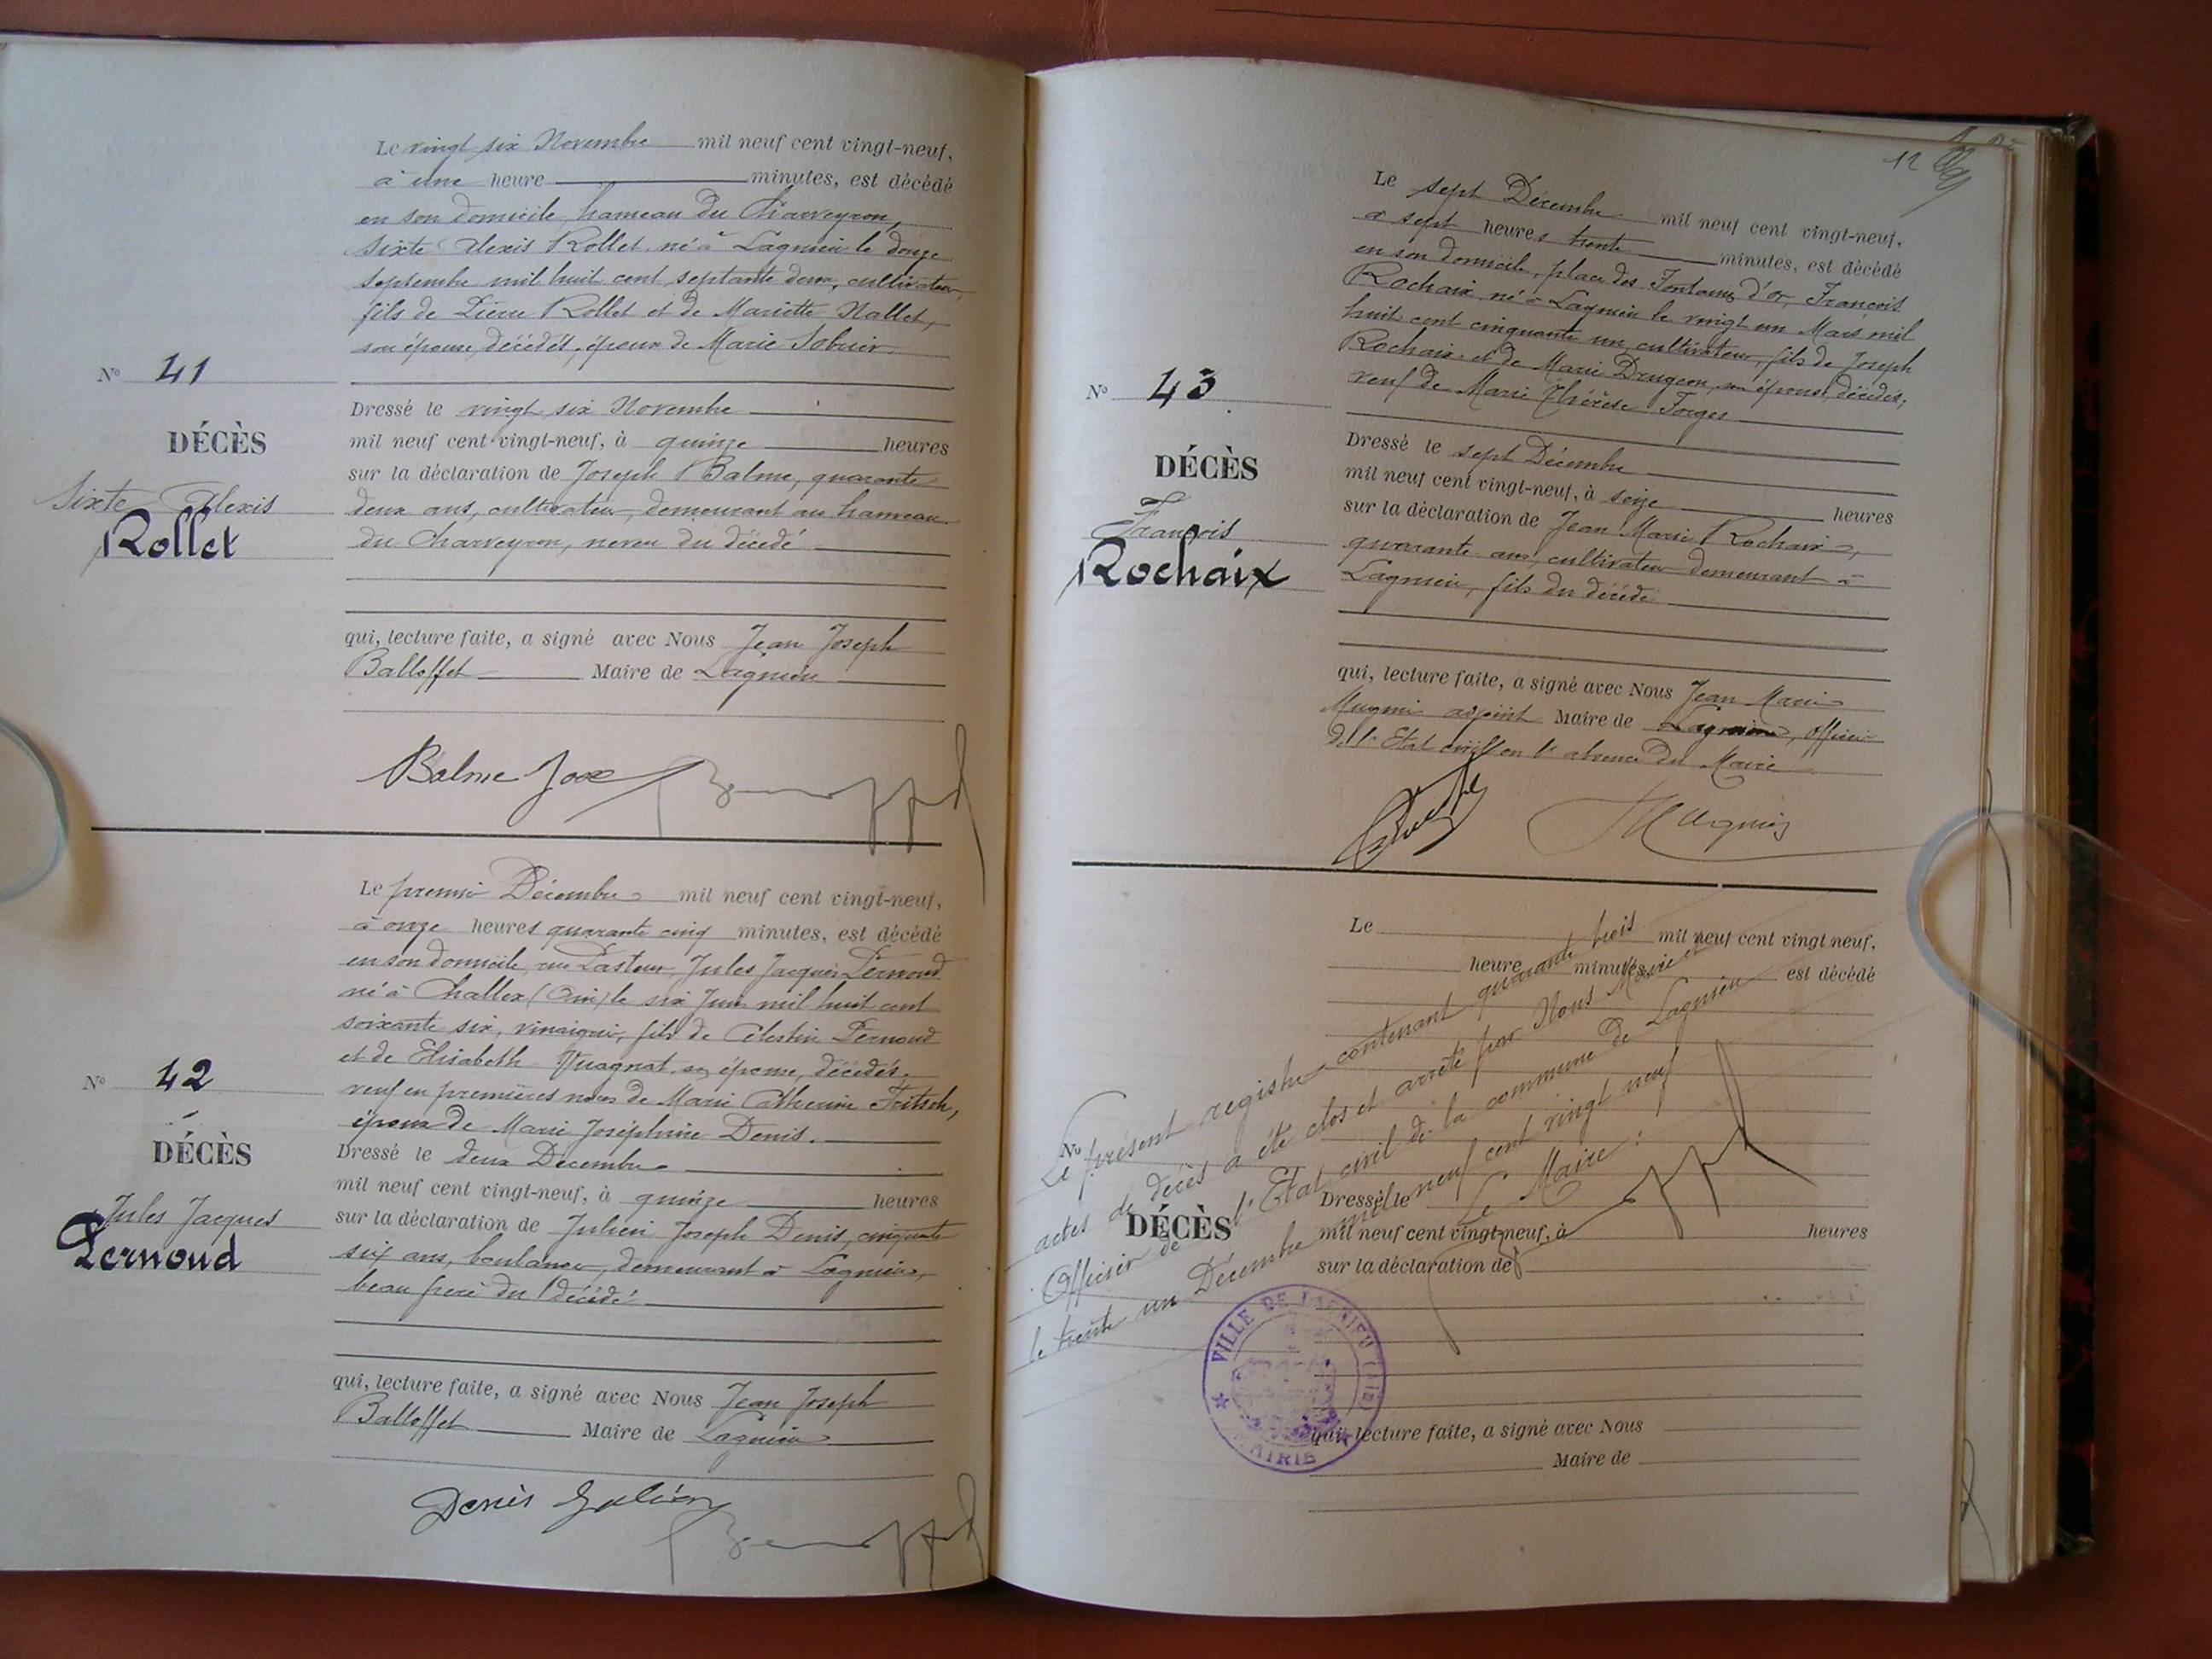 Le vingt six Novembre mil neuf cent vingt-neuf,
à une heure minutes, est décédé
en son domicile, hameau du Charveyron,
Sixte Alexis Rollet, né à Lagnieu le douze
septembre mil huit cent septante deux, cultivateur,
fils de Pierre Rollet et de Mariette Nallet,
son épouse, décédés, époux de Marie
N° 41
DÉCÈS
Sixte Alexis
Rollet
Dressé le vingt six Novembre
mil neuf cent vingt-neuf, à quinze heures
sur la déclaration de Joseph Balme, quarante
deux ans, cultivateur, demeurant au hameau
du Charveyron, neveu du décédé
qui, lecture faite, a signé avec Nous Jean Joseph
Balloffet Maire de Lagnieu
Balme Jose
Le premier Décembre mil neuf cent vingt-neuf,
à onze heures quarante cinq minutes, est décédé
en son domicile, rue Pasteur, Jules Jacques Pernoud
né à Challex (Ain) le six Juin mil huit cent
soixante six, vinaigrier, fils de Célestin Pernoud
et de Elisabeth Quagnat, son épouse, décédés,
veuf en premières noces de Marie Catherine Fritsch,
époux de Marie Joséphine Denis.
N° 42
DÉCÈS
Jules Jacques
Pernoud
Dressé le deux Décembre
mil neuf cent vingt-neuf, à quinze heures
sur la déclaration de Julien Joseph Denis, cinquante
six ans, boulanger, demeurant à Lagnieu,
beau frère du décédé
qui, lecture faite, a signé avec Nous Jean Joseph
Balloffet Maire de Lagnieu
Denis Julien
12
Le sept Décembre mil neuf cent vingt-neuf,
à sept heures trente minutes, est décédé
en son domicile, place des Fontaines d'or, François
Rochaix, né à Lagnieu le vingt un Mars mil
huit cent cinquante un, cultivateur, fils de Joseph
Rochaix et de Marie Drugeon, son épouse, décédés,
veuf de Marie Thérèse Forges
N° 43
DÉCÈS
François
Rochaix
Dressé le sept Décembre
mil neuf cent vingt-neuf, à seize heures
sur la déclaration de Jean Marie Rochaix,
quarante ans, cultivateur demeurant à
Lagnieu, fils du décédé
qui, lecture faite, a signé avec Nous Jean Marie
Mugnier adjoint Maire de Lagnieu, officier
de l'Etat civil en l'absence du Maire
Mugnier
Le mil neuf cent vingt-neuf,
heure minutes est décédé
Le présent registre contenant quarante trois
actes de décès a été clos et arrêté par Nous Maire et
Officier de l'Etat civil de la commune de Lagnieu
le trente un Décembre mil neuf cent vingt neuf
Le Maire :
N°
DÉCÈS
Dressé le
mil neuf cent vingt-neuf, à heures
sur la déclaration de
VILLE DE LAGNIEU (AIN)
MAIRIE
qui, lecture faite, a signé avec Nous
Maire de